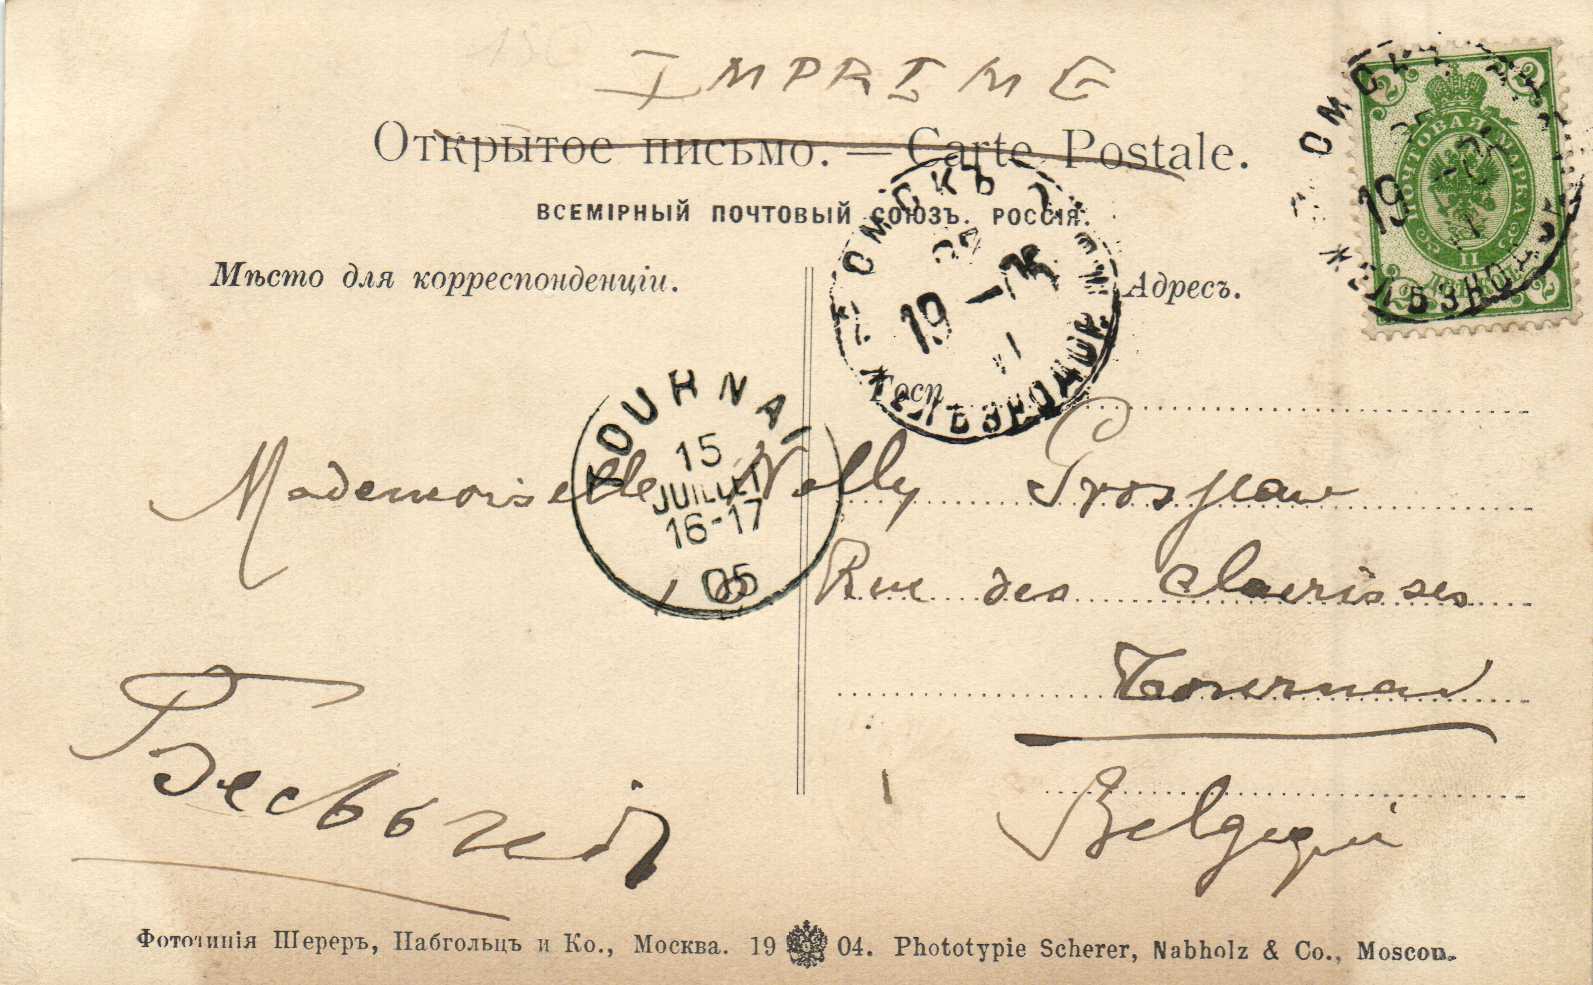 IMPRIMÉ
Открытое письмо. — Carte Postale.
ВСЕМІРНЫЙ ПОЧТОВЫЙ СОЮЗЪ. РОССІЯ.
Мѣсто для корреспонденціи.
Адресъ.
ПОЧТОВАЯ МАРКА
2
ОМСКЪ
19
ЖЕЛѢЗНОДОР
ОМСКЪ
19
ЖЕЛѢЗНОДОР
Госп
TOURNAI
15
JUILLET
16-17
05
Mademoiselle Nelly Grosjean
Rue des Clarisses
Tournai
Belgique
Фототипія Шереръ, Набгольцъ и Ко., Москва. 19 04. Phototypie Scherer, Nabholz & Co., Moscou.